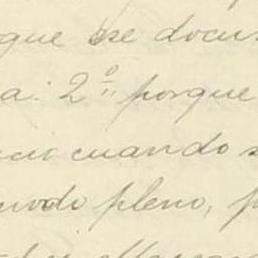 que ese docu
a: 2º porque
cio cuando s
modo pleno, p